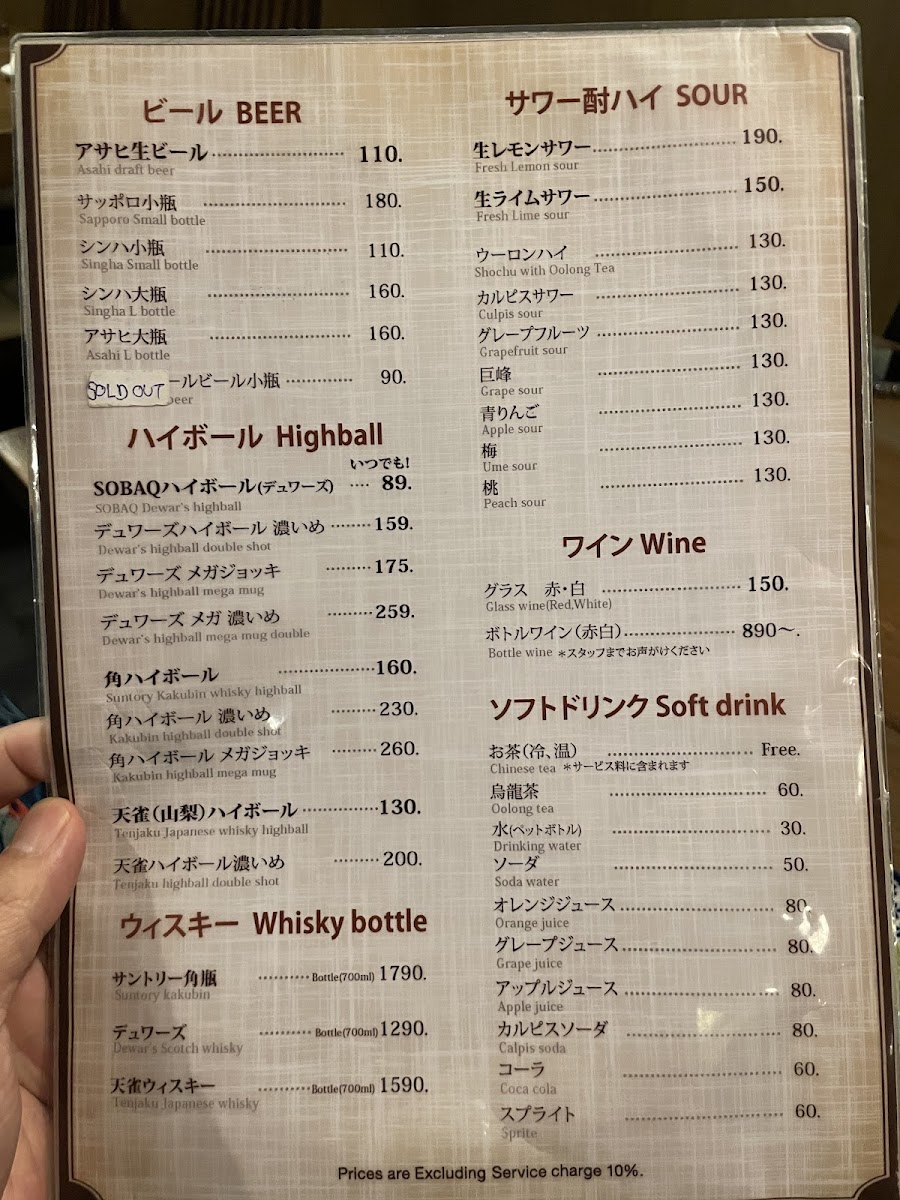 ビール BEER
アサヒ生ビール 110.
Asahi draft beer
サッポロ小瓶 180.
Sapporo Small bottle
シンハ小瓶 110.
Singha Small bottle
シンハ大瓶 160.
Singha L bottle
アサヒ大瓶 160.
Asahi L bottle
SOLD OUT ールビール小瓶 90.
beer
ハイボール Highball
いつでも!
SOBAQハイボール(デュワーズ) 89.
SOBAQ Dewar's highball
デュワーズハイボール 濃いめ 159.
Dewar's highball double shot
デュワーズ メガジョッキ 175.
Dewar's highball mega mug
デュワーズ メガ 濃いめ 259.
Dewar's highball mega mug double
角ハイボール 160.
Suntory Kakubin whisky highball
角ハイボール 濃いめ 230.
Kakubin highball double shot
角ハイボール メガジョッキ 260.
Kakubin highball mega mug
天雀(山梨)ハイボール 130.
Tenjaku Japanese whisky highball
天雀ハイボール濃いめ 200.
Tenjaku highball double shot
ウィスキー Whisky bottle
サントリー角瓶 Bottle(700ml) 1790.
Suntory kakubin
デュワーズ Bottle(700ml) 1290.
Dewar's Scotch whisky
天雀ウィスキー Bottle(700ml) 1590.
Tenjaku Japanese whisky
サワー酎ハイ SOUR
生レモンサワー 190.
Fresh Lemon sour
生ライムサワー 150.
Fresh Lime sour
ウーロンハイ 130.
Shochu with Oolong Tea
カルピスサワー 130.
Culpis sour
グレープフルーツ 130.
Grapefruit sour
巨峰 130.
Grape sour
青りんご 130.
Apple sour
梅 130.
Ume sour
桃 130.
Peach sour
ワイン Wine
グラス 赤・白 150.
Glass wine(Red,White)
ボトルワイン(赤白) 890〜.
Bottle wine *スタッフまでお声がけください
ソフトドリンク Soft drink
お茶(冷、温) Free.
Chinese tea *サービス料に含まれます
烏龍茶 60.
Oolong tea
水(ペットボトル) 30.
Drinking water
ソーダ 50.
Soda water
オレンジジュース 80.
Orange juice
グレープジュース 80.
Grape juice
アップルジュース 80.
Apple juice
カルピスソーダ 80.
Calpis soda
コーラ 60.
Coca cola
スプライト 60.
Sprite
Prices are Excluding Service charge 10%.